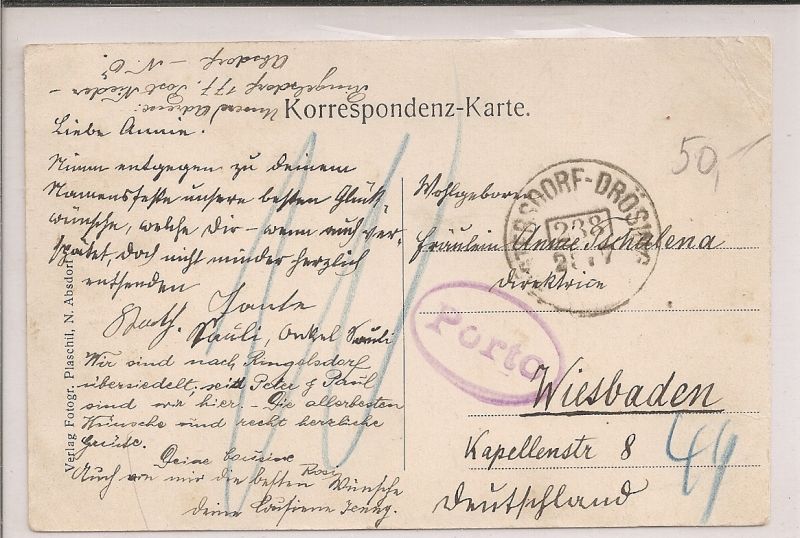 Absdorf – N. Ö.
Ringelsdorf 177. Post Nieder-
Unsere Adresse:
Korrespondenz-Karte.
Liebe Annie.
Nimm entgegen zu deinem
Namensfeste unsere besten Glück-
wünsche, welche dir – wenn auch ver-
spätet, doch nicht minder herzlich
entsenden
Tante
Pauli, Onkel
Wir sind nach Ringelsdorf
übersiedelt, seit Peter & Paul
sind wir hier. – Die allerbesten
Wünsche und recht herzliche
Grüße.
Deine Cousine
Rosi
Auch von mir die besten Wünsche
deine Cousine Jenny.
Verlag Fotogr. Plaschil, N. Absdorf
50,-
Wohlgeboren
Fräulein Annie Tschalena
Direktrice
Wiesbaden
Kapellenstr 8
Deutschland
ERSDORF-DRÖSING
238
Porto
49